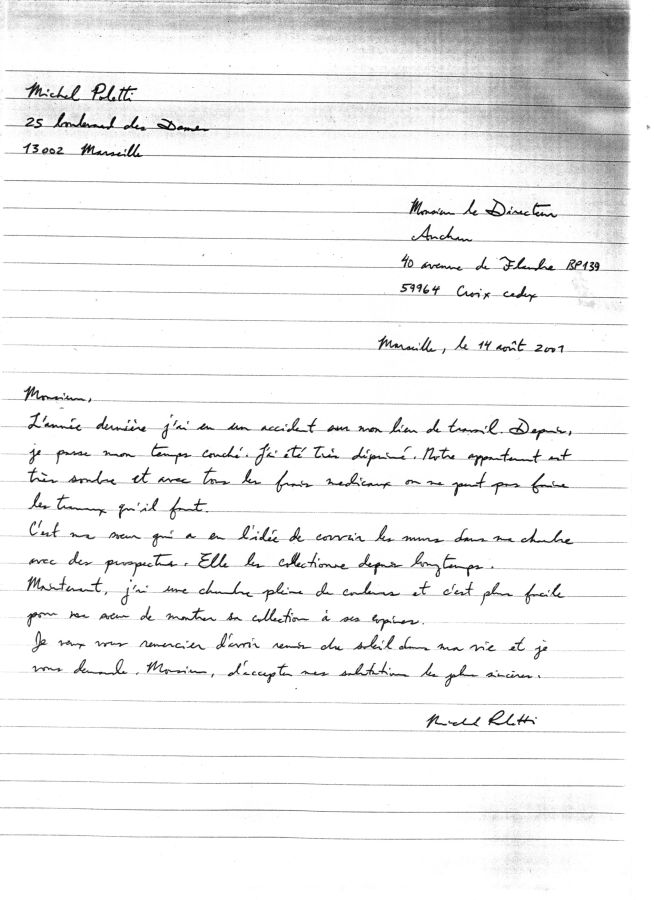 Michel Poletti
25 boulevard des Dames
13002 Marseille
Monsieur le Directeur
Auchan
40 avenue de Flandre BP139
59964 Croix cedex
Marseille, le 14 août 2001
Monsieur,
L'année dernière j'ai eu un accident sur mon lieu de travail. Depuis,
je passe mon temps couché. J'ai été très déprimé. Notre appartement est
très sombre et avec tous les frais medicaux on ne peut pas faire
les travaux qu'il faut.
C'est ma sœur qui a eu l'idée de couvrir les murs dans ma chambre
avec des prospectus. Elle les collectionne depuis longtemps.
Maintenant, j'ai une chambre pleine de couleurs et c'est plus facile
pour ma sœur de montrer sa collection à ses copines.
Je veux vous remercier d'avoir remis du soleil dans ma vie et je
vous demande, Monsieur, d'accepter mes salutations les plus sincères.
Michel Poletti